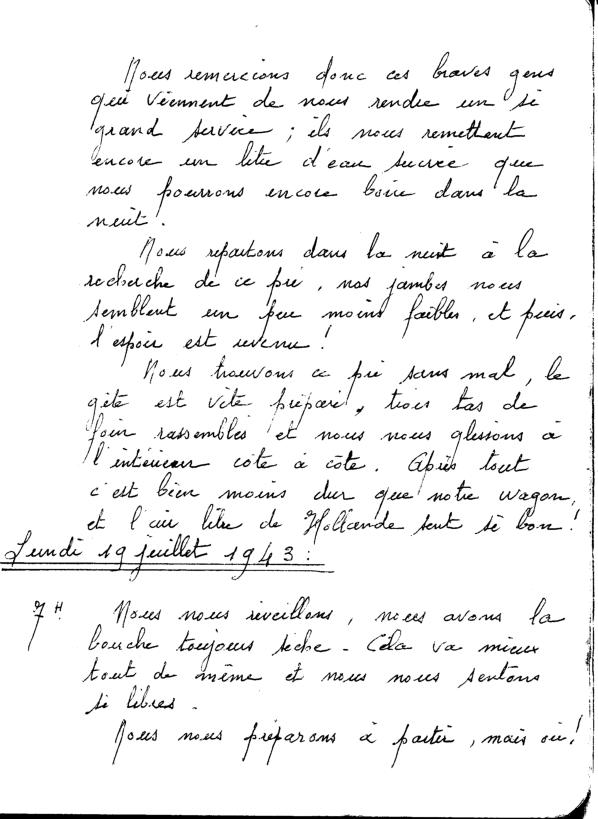 Nous remercions donc ces braves gens
qui viennent de nous rendre un si
grand service ; ils nous remettent
encore un litre d'eau sucrée que
nous pourrons encore boire dans la
nuit.
Nous repartons dans la nuit à la
recherche de ce pré, nos jambes nous
semblent un peu moins faibles, et puis,
l'espoir est revenu !
Nous trouvons ce pré sans mal, le
gîte est vite préparé, trois tas de
foin rassemblés et nous nous glissons à
l'intérieur côte à côte. Après tout
c'est bien moins dur que notre wagon,
et l'air libre de Hollande sent si bon !
Lundi 19 juillet 1943 :
7H. Nous nous réveillons, nous avons la
bouche toujours sèche - Cela va mieux
tout de même et nous nous sentons
si libres.
Nous nous préparons à partir, mais où !